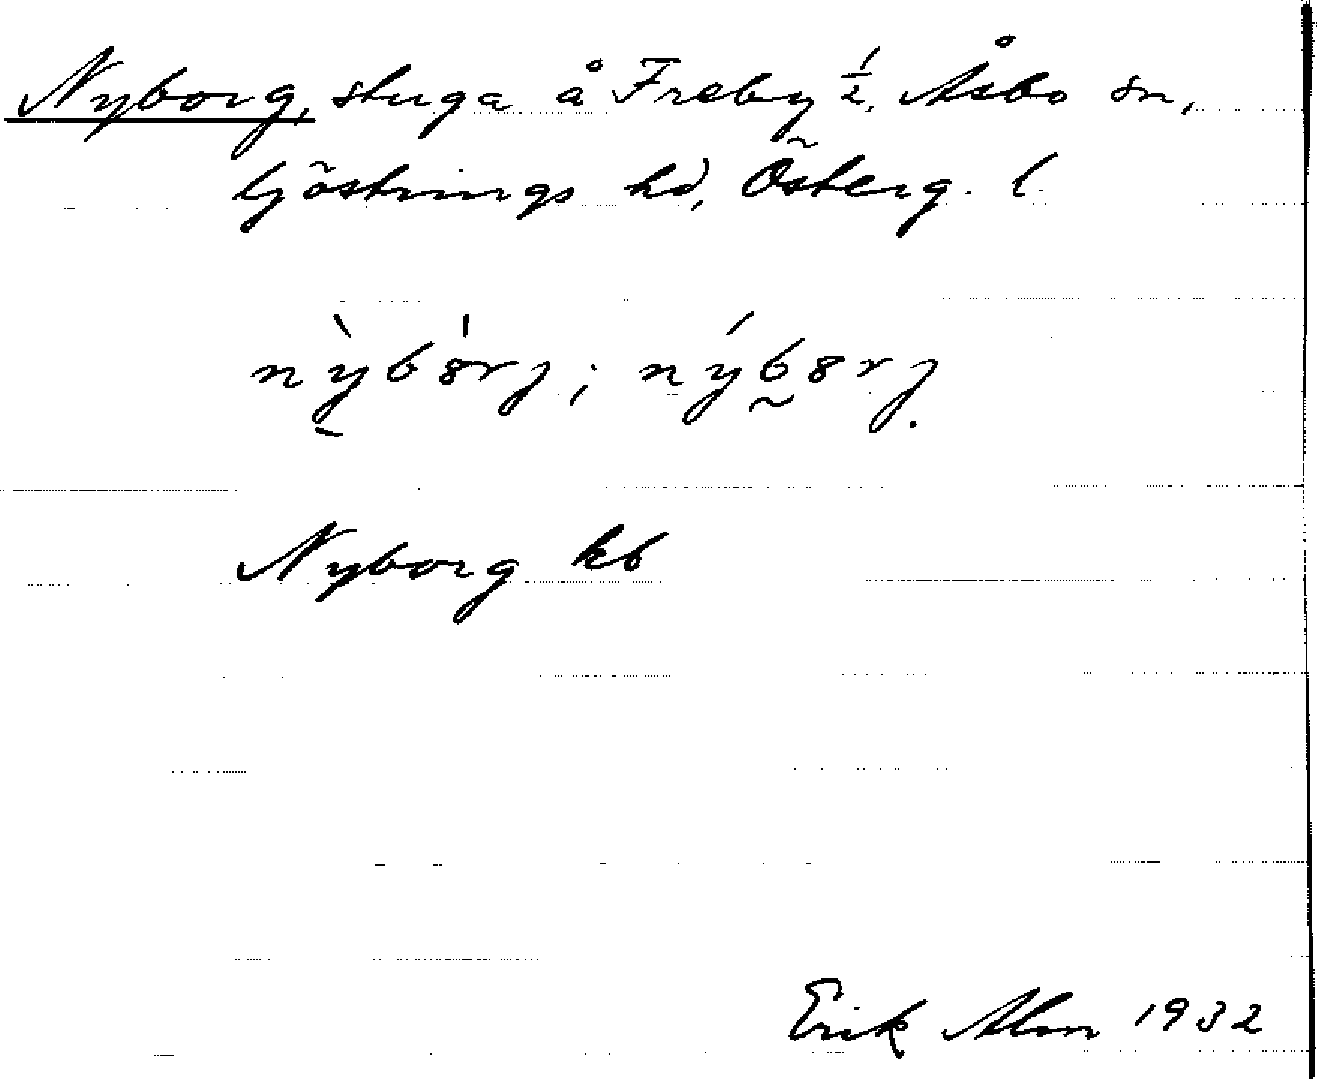 Nyborg, stuga å Freby 1/2, Åsbo sn,
Göstrings hd, Österg. l.
nỳbȯrj; nýb̰8rj.
Nyborg kb
Erik Alm 1932